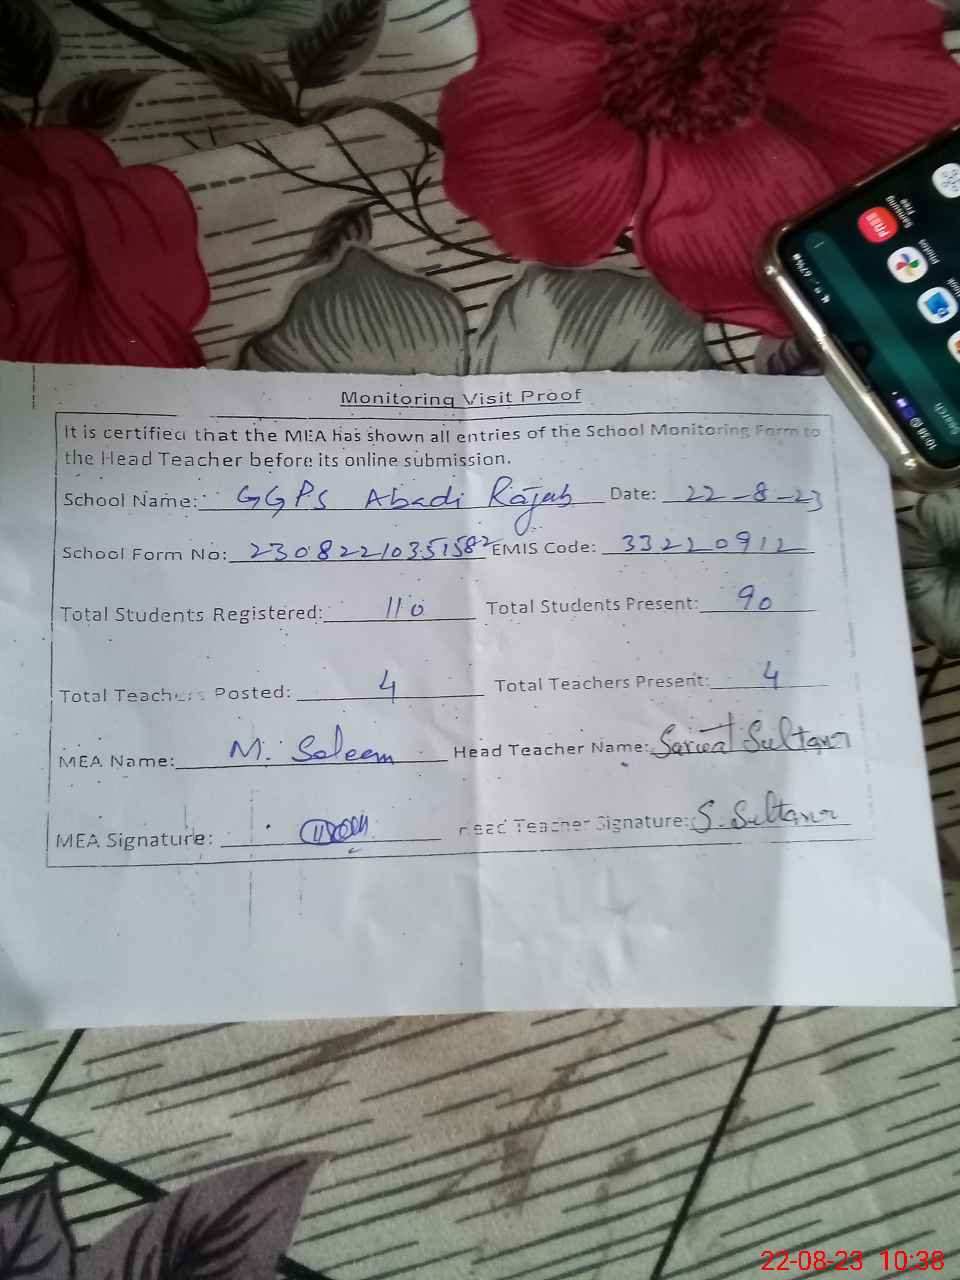 Monitoring Visit Proof
It is certified that the MEA has shown all entries of the School Monitoring Form to
the Head Teacher before its online submission.
School Name: GGPS Abadi Rajab Date: 22-8-23
School Form No: 23082210351582 EMIS Code: 33220912
Total Students Registered: 110 Total Students Present: 90
Total Teachers Posted: 4 Total Teachers Present: 4
MEA Name: M. Saleem Head Teacher Name: Sarwat Sultana
MEA Signature: Head Teacher Signature: S. Sultana
Samsung
Free
Photos
67%
Search
10:38
22-08-23 10:38